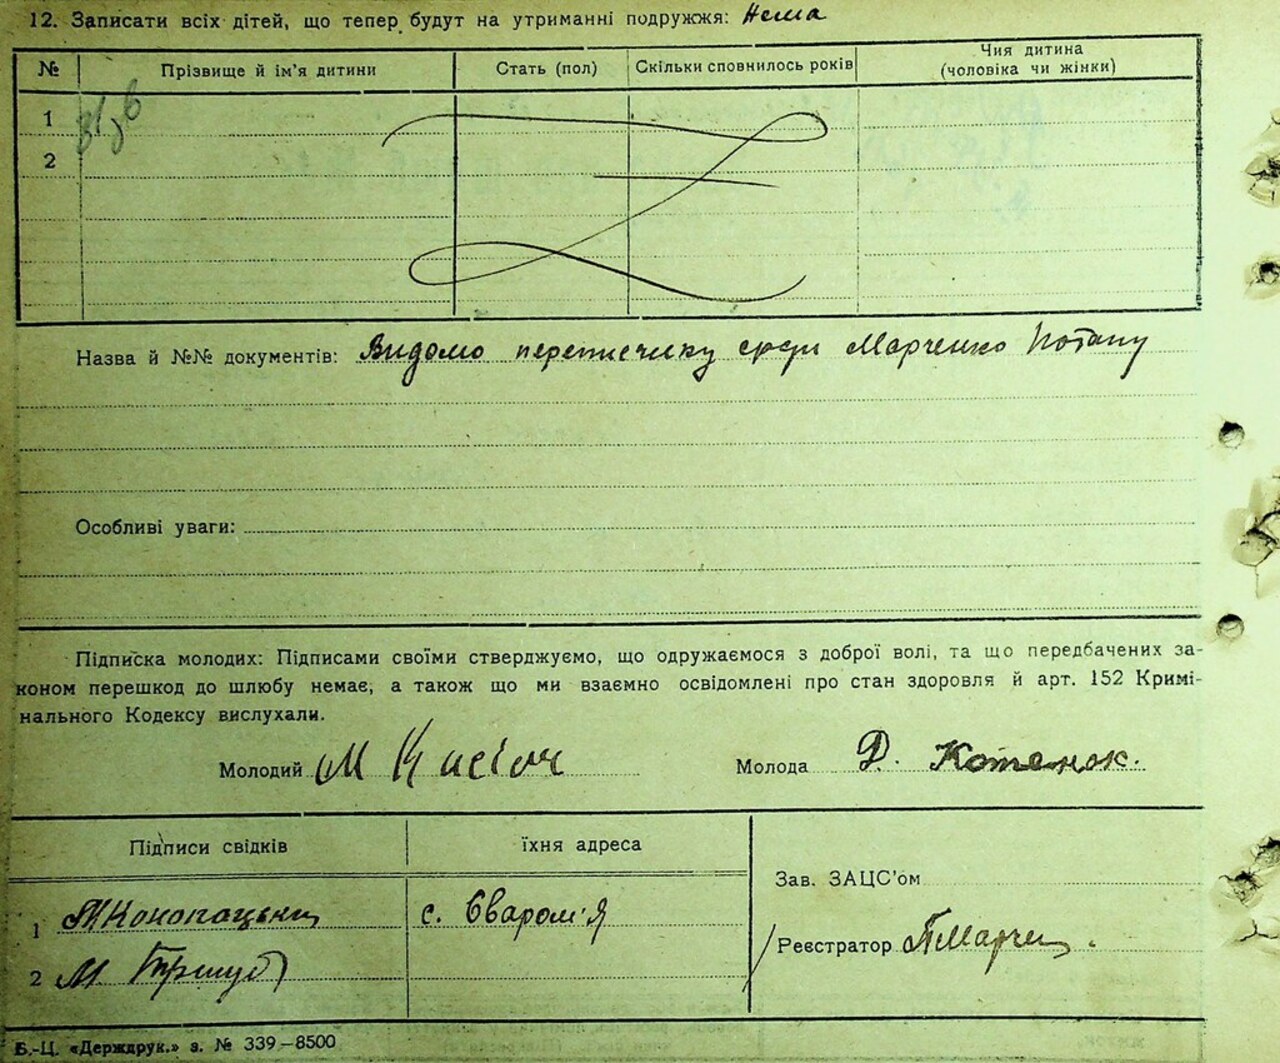 12. Записати всіх дітей, що тепер будуть на утриманні подружжя: Нема
№ Прізвище й ім'я дитини Стать (пол) Скільки сповнилось років Чия дитина (чоловіка чи жінки)
1
2
Назва й №№ документів: Видомо Марченко Потапу
Особливі уваги:
Підписка молодих: Підписами своїми стверджуємо, що одружаємося з доброї волі, та що передбачених за-
коном перешкод до шлюбу немає, а також що ми взаємно освідомлені про стан здоровля й арт. 152 Кримі-
нального Кодексу вислухали.
Молодий М Кисіоч Молода Д. Котенок.
Підписи свідків їхня адреса
Зав. ЗАЦС'ом
1 с. Сваром'я
Реєстратор
2 М
Б.-Ц. «Держдрук.» з. № 339—8500